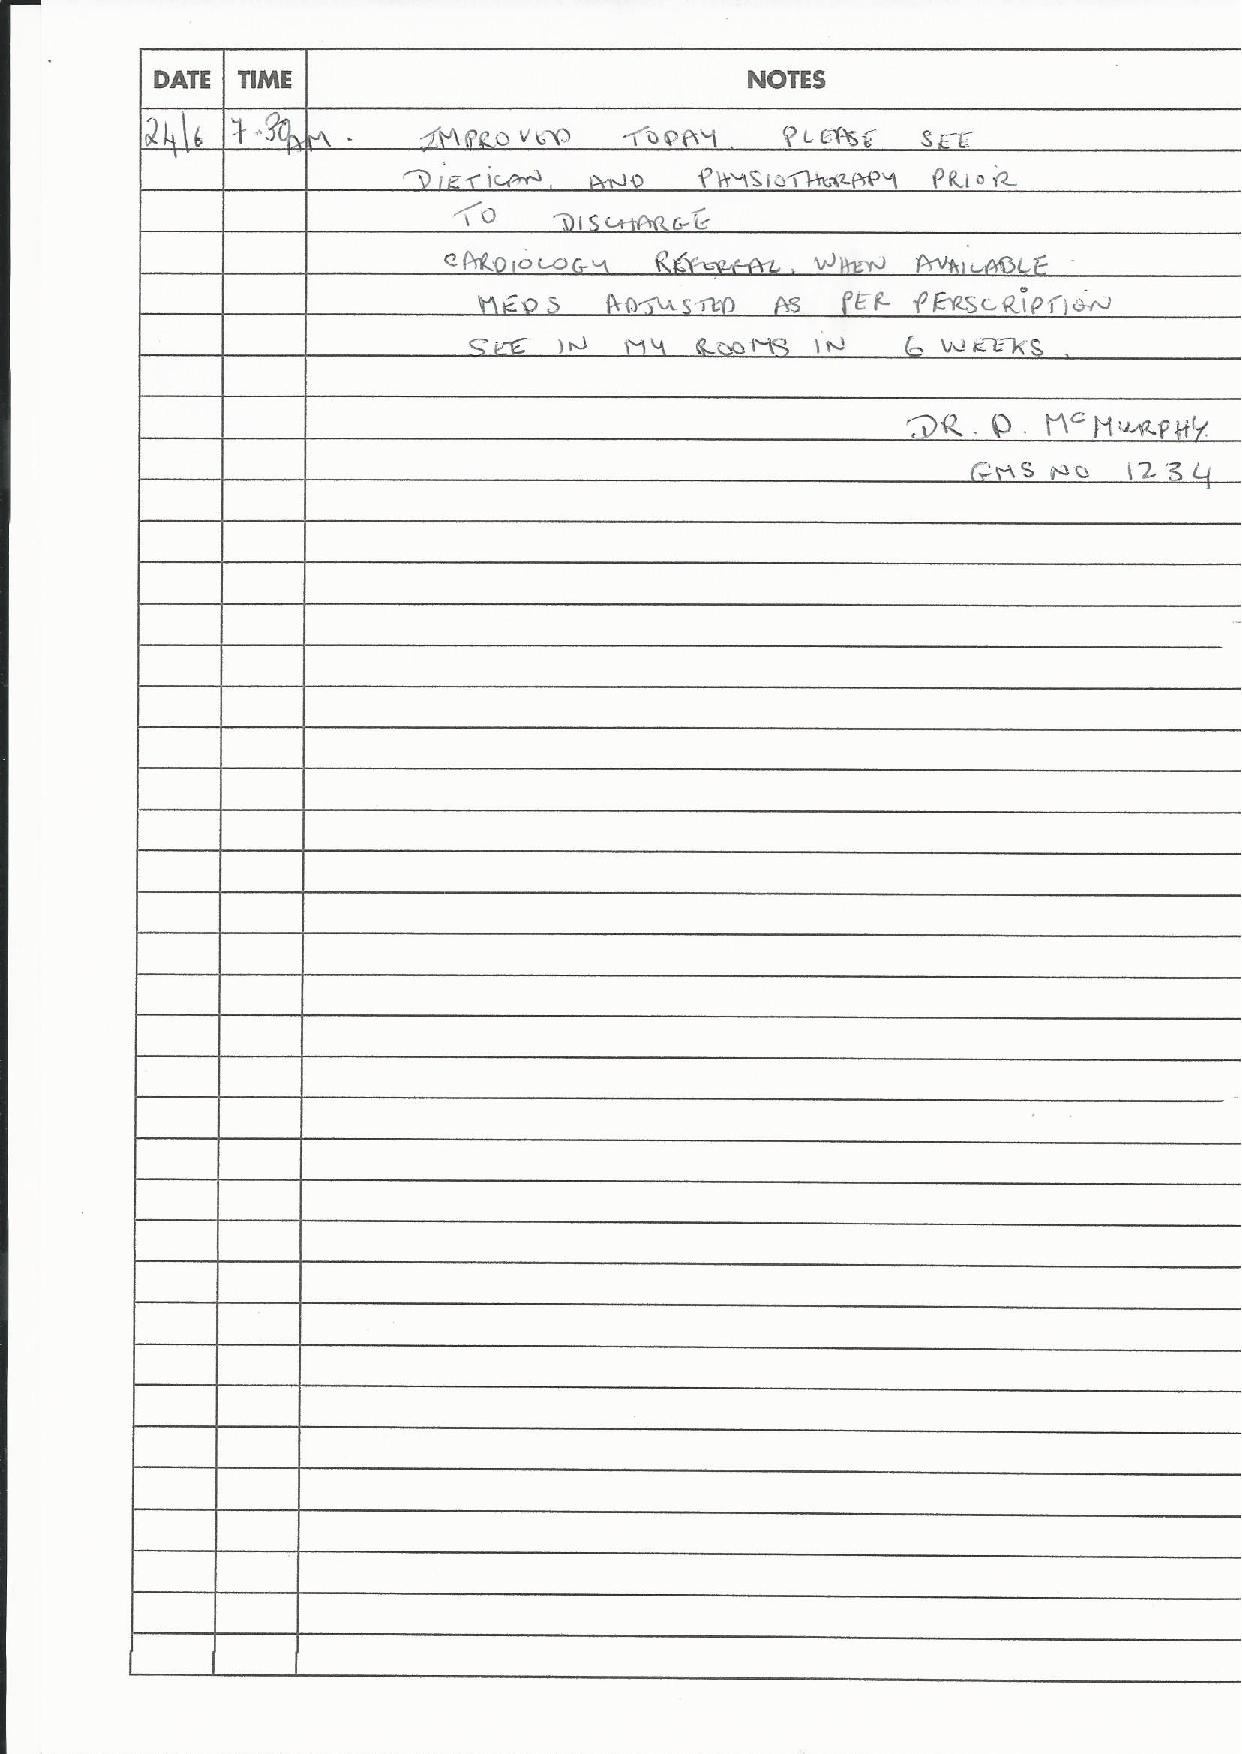 DATE TIME NOTES
24/6 7.30AM. IMPROVED TODAY. PLEASE SEE
DIETICAN. AND PHYSIOTHERAPY PRIOR
TO DISCHARGE
CARDIOLOGY REFERRAL. WHEN AVAILABLE
MEDS ADJUSTED AS PER PERSCRIPTION
SEE IN MY ROOMS IN 6 WEEKS.
DR. D. McMURPHY.
GMS NO 1234